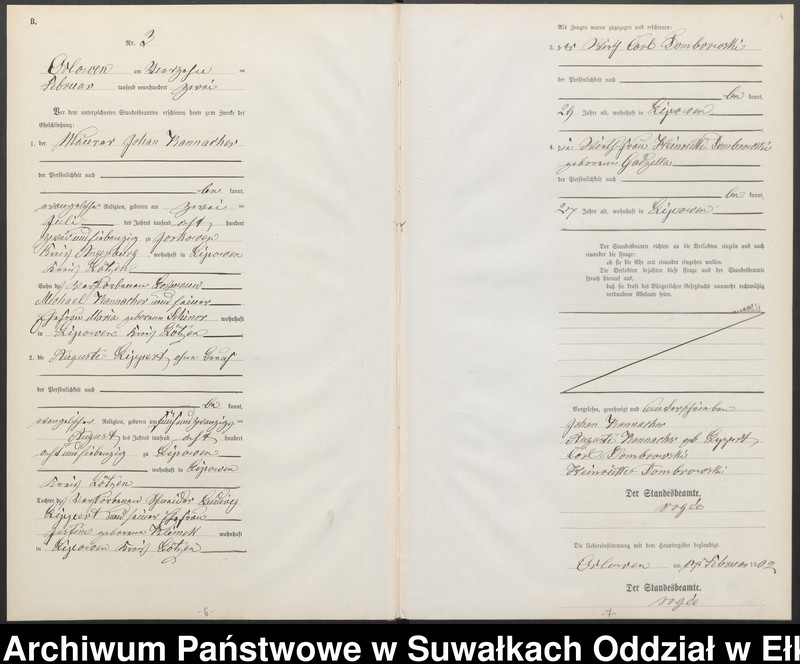 B.
Nr. 3
Orlowen am Vierzehn
Februar tausend neunhundert zwei
Vor dem unterzeichneten Standesbeamten erschienen heute zum Zwecke der
Eheschließung:
1. der Maurer Johan Kannacher
der Persönlichkeit nach
be kannt,
evangelischer Religion, geboren am zwei
Juli des Jahres tausend acht hundert
zweiundsiebenzig zu
Kreis Angerburg, wohnhaft in Lipowen
Kreis Lötzen
Sohn des verstorbenen
Michael Kannacher und seiner
Ehefrau Maria geborene wohnhaft
in Lipowen Kreis Lötzen
2. die Auguste Lippert, ohne Beruf
der Persönlichkeit nach
be kannt,
evangelischer Religion, geboren am fünfundzwanzig
August des Jahres tausend acht hundert
achtundsiebenzig zu Lipowen
, wohnhaft in Lipowen
Kreis Lötzen
Tochter des verstorbenen Schneider Ludwig
Lippert und seiner Ehefrau
Justine geborene Klimek wohnhaft
in Lipowen Kreis Lötzen
-6-
Als Zeugen waren zugezogen und erschienen:
3. der Wirth Carl Dombrowski
der Persönlichkeit nach
be kannt,
29 Jahre alt, wohnhaft in Lipowen
4. die Wirthsfrau Heinriette Dombrowski
geborene Gadzella
der Persönlichkeit nach
be kannt,
27 Jahre alt, wohnhaft in Lipowen
Der Standesbeamte richtete an die Verlobten einzeln und nach
einander die Frage:
ob sie die Ehe mit einander eingehen wollen.
Die Verlobten bejahten diese Frage und der Standesbeamte
sprach hierauf aus,
daß sie kraft des Bürgerlichen Gesetzbuchs nunmehr rechtmäßig
verbundene Eheleute seien.
Vorgelesen, genehmigt und unterschrieben
Johan Kannacher
Auguste Kannacher geb Lippert
Carl Dombrowski
Heinriette Dombrowski
Der Standesbeamte.
Rogée
Die Uebereinstimmung mit dem Hauptregister beglaubigt.
Orlowen am 14 Februar 1902
Der Standesbeamte.
Rogée
-7-
Archiwum Państwowe w Suwałkach Oddział w Ełk